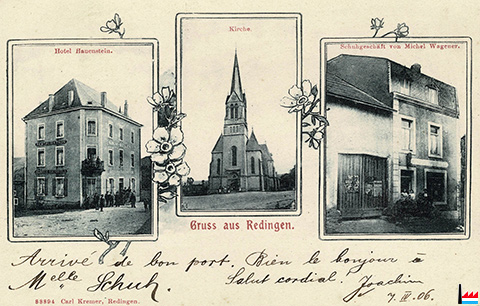 Hotel Hauenstein.
Kirche
Schuhgeschäft von Michel Wagener.
Gruss aus Redingen.
Arrivé de bon port. Bien le bonjour à
Melle Schuh. Salut cordial. Joachim
7. IV. 06.
88894 Carl Kremer, Redingen.